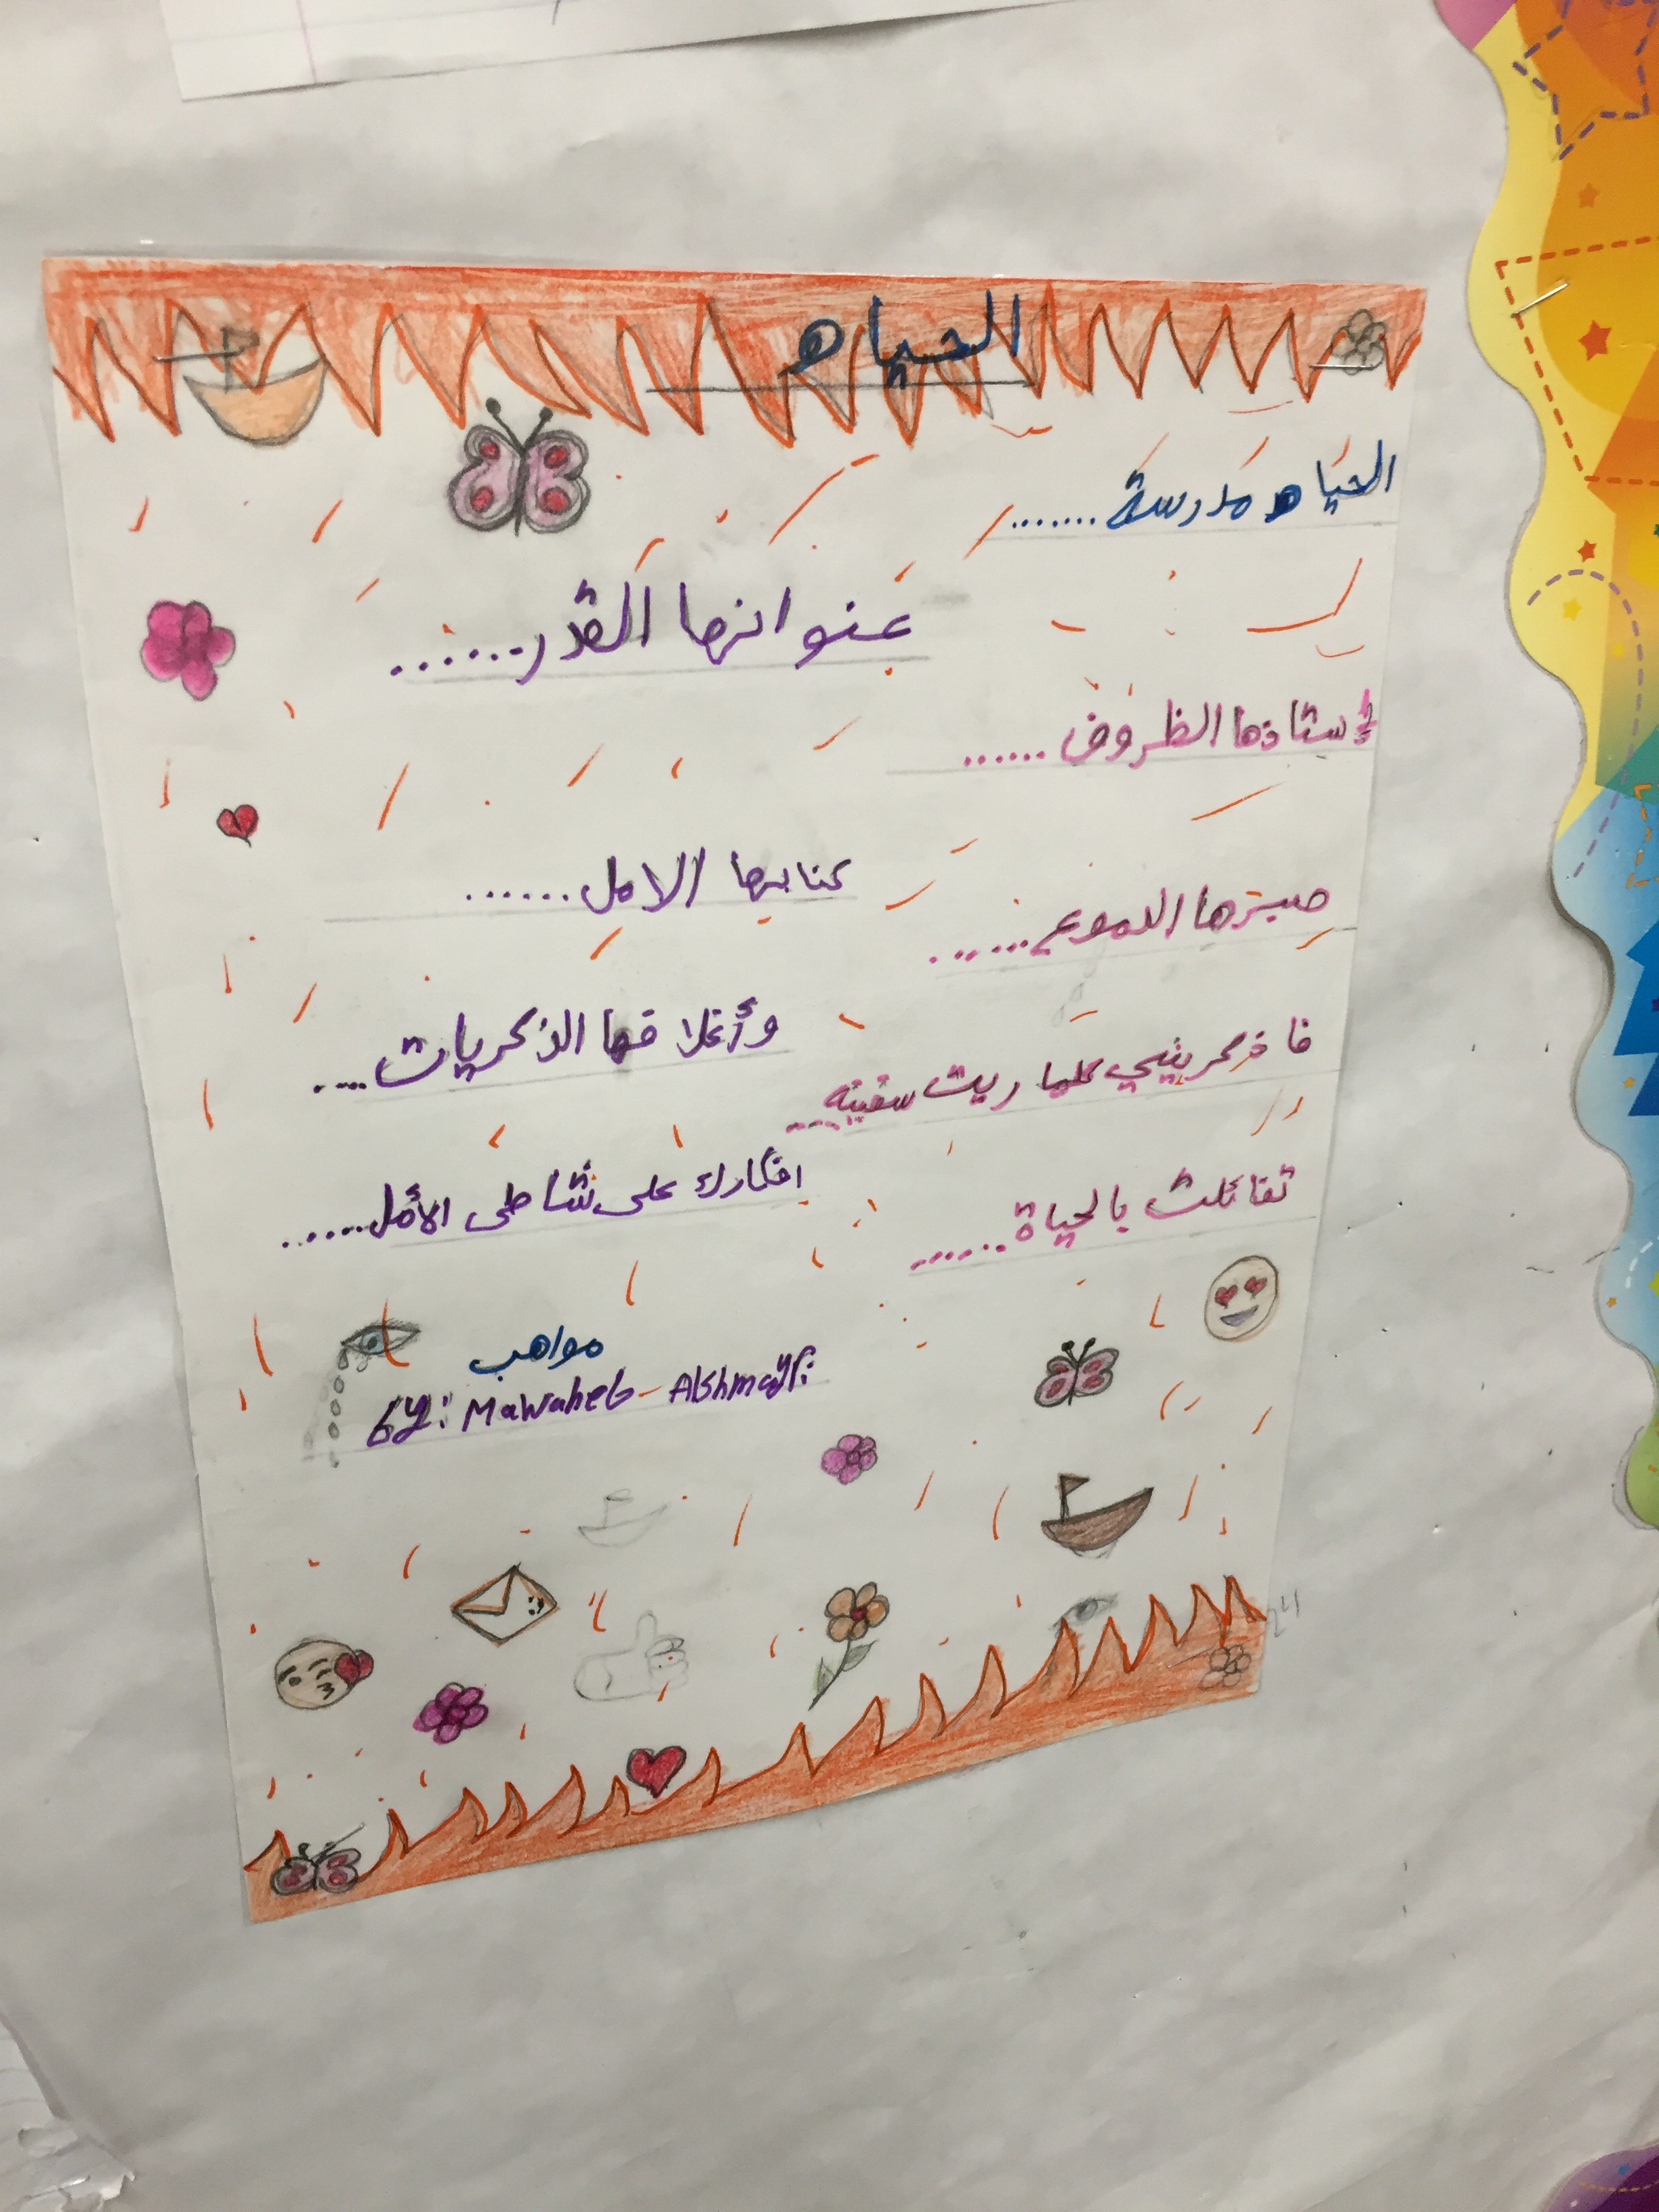 الحياه
الحياه مدرسة.......
عنوانها القدر......
إستاذها الظروف......
عنابيها الامل......
صبرها الدموع......
وأغلافها الذكريات....
فا ذكريني كلما ريت سفينه....
افكارك على شاطى الأمل.....
تفائلت بالحياة......
مواهب
by: Mawaheb - Alshmayri